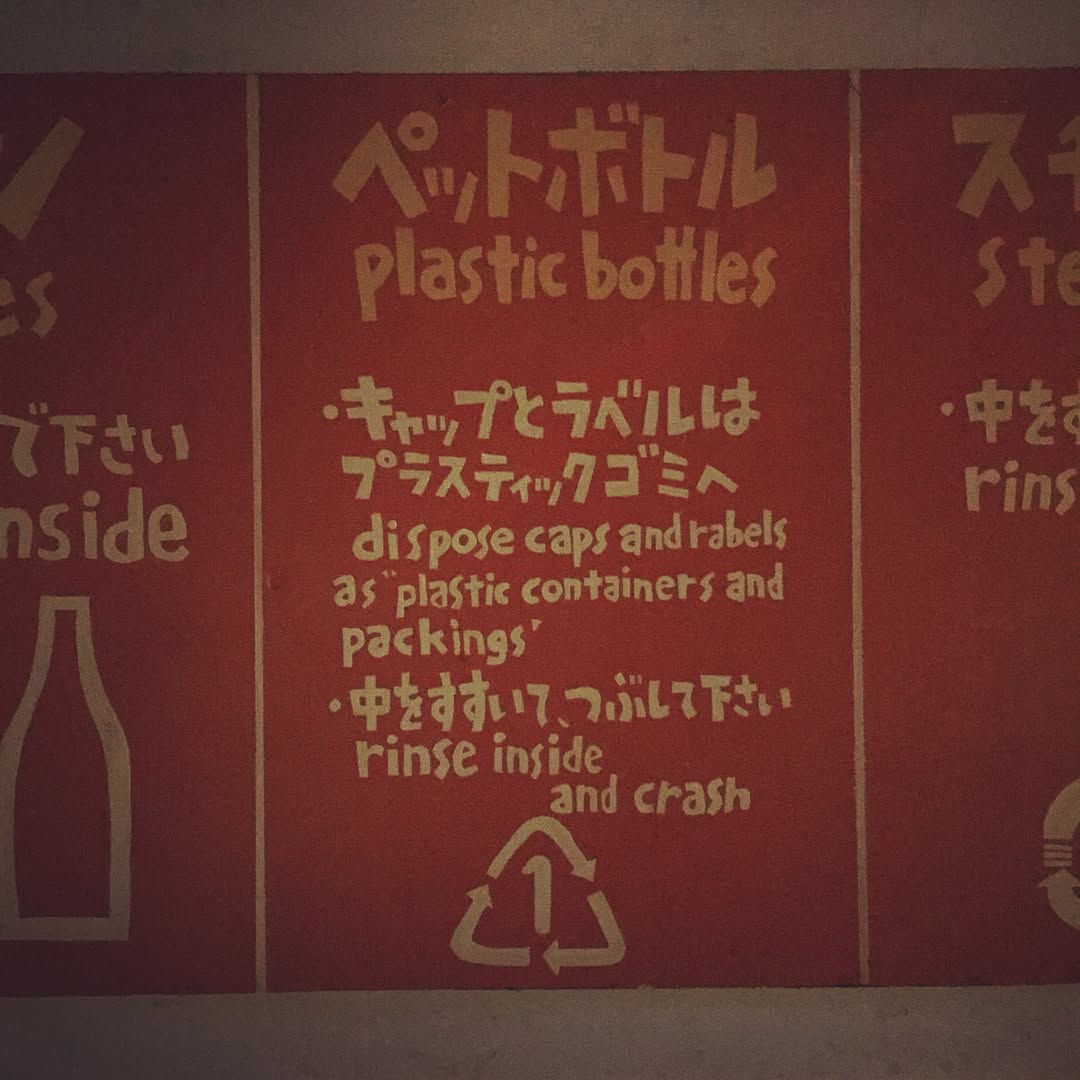 ン
es
で下さい
inside
ペットボトル
plastic bottles
・キャップとラベルは
プラスティックゴミへ
dispose caps and rabels
as "plastic containers and
packings"
・中をすすいで、つぶして下さい
rinse inside
and crash
1
スチ
ste
・中をす
rins